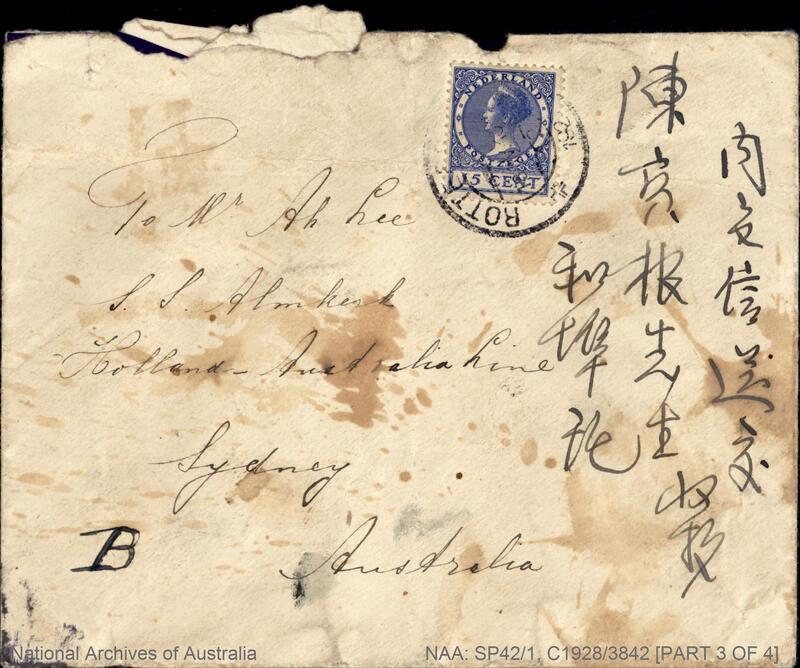 NEDERLAND
POSTZEGEL
15 CENT
ROTTE
To Mr Ah Lee
S. S. Almkerk
Holland-Australia Line
Sydney
Australia
B
內文信送交
陳賓根先生收拆
和 托
National Archives of Australia
NAA: SP42/1, C1928/3842 [PART 3 OF 4]